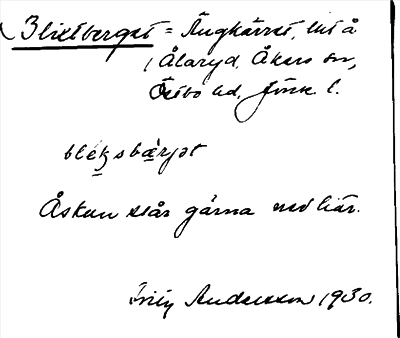 Blixtberget = Ängkärret, litå
i Ålaryd, Åkers sn,
Östbo hd, Jönk. l.
blék̯sbæ̀rjət
Åskan slår gärna ned här.
Andersson 1930.